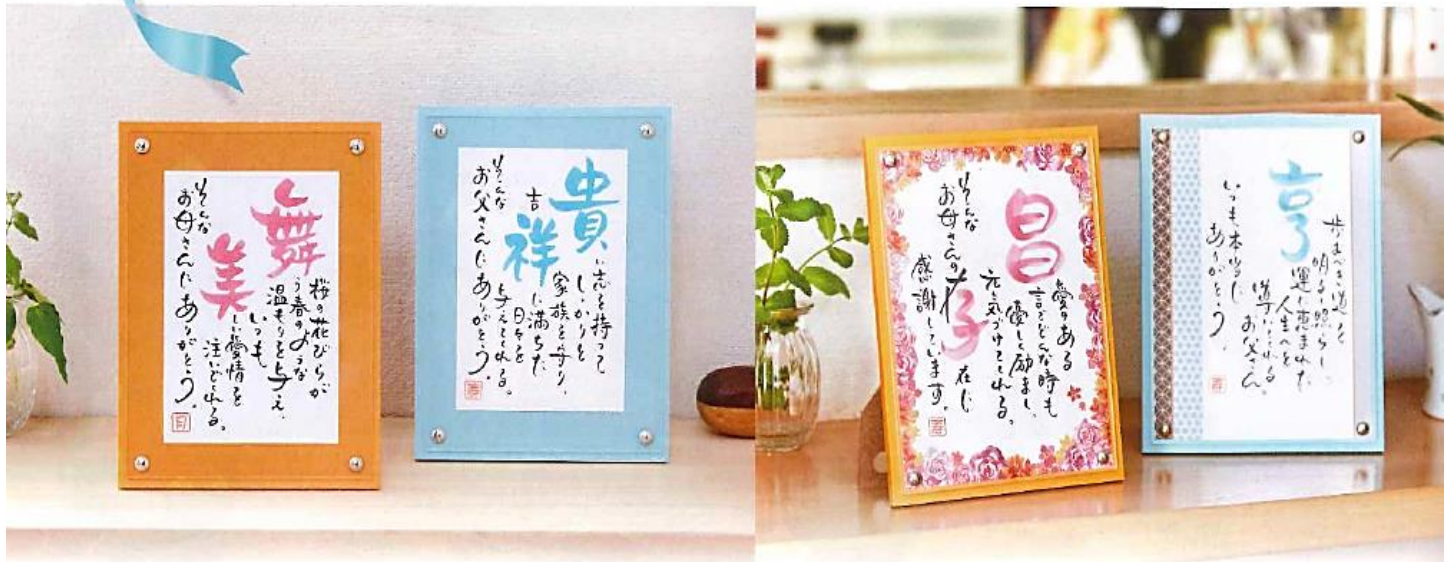 桜の花びらが
舞う春のような
温もりを与え、
いつも
美しい愛情を
注いでくれる。
そんな
お母さんにありがとう。
貴い志を持って
しっかりと
家族を守り、
吉祥に満ちた
日々を
与えてくれる。
そんな
お父さんにありがとう。
愛のある
昌言でどんな時も
優しく励まし、
元気づけてくれる。
そんな
お母さんの存在に
感謝しています。
歩むべき道を
明るく照らし、
亨運に恵まれた
人生へと
導いてくれる
お父さん。
いつも本当に
ありがとう。